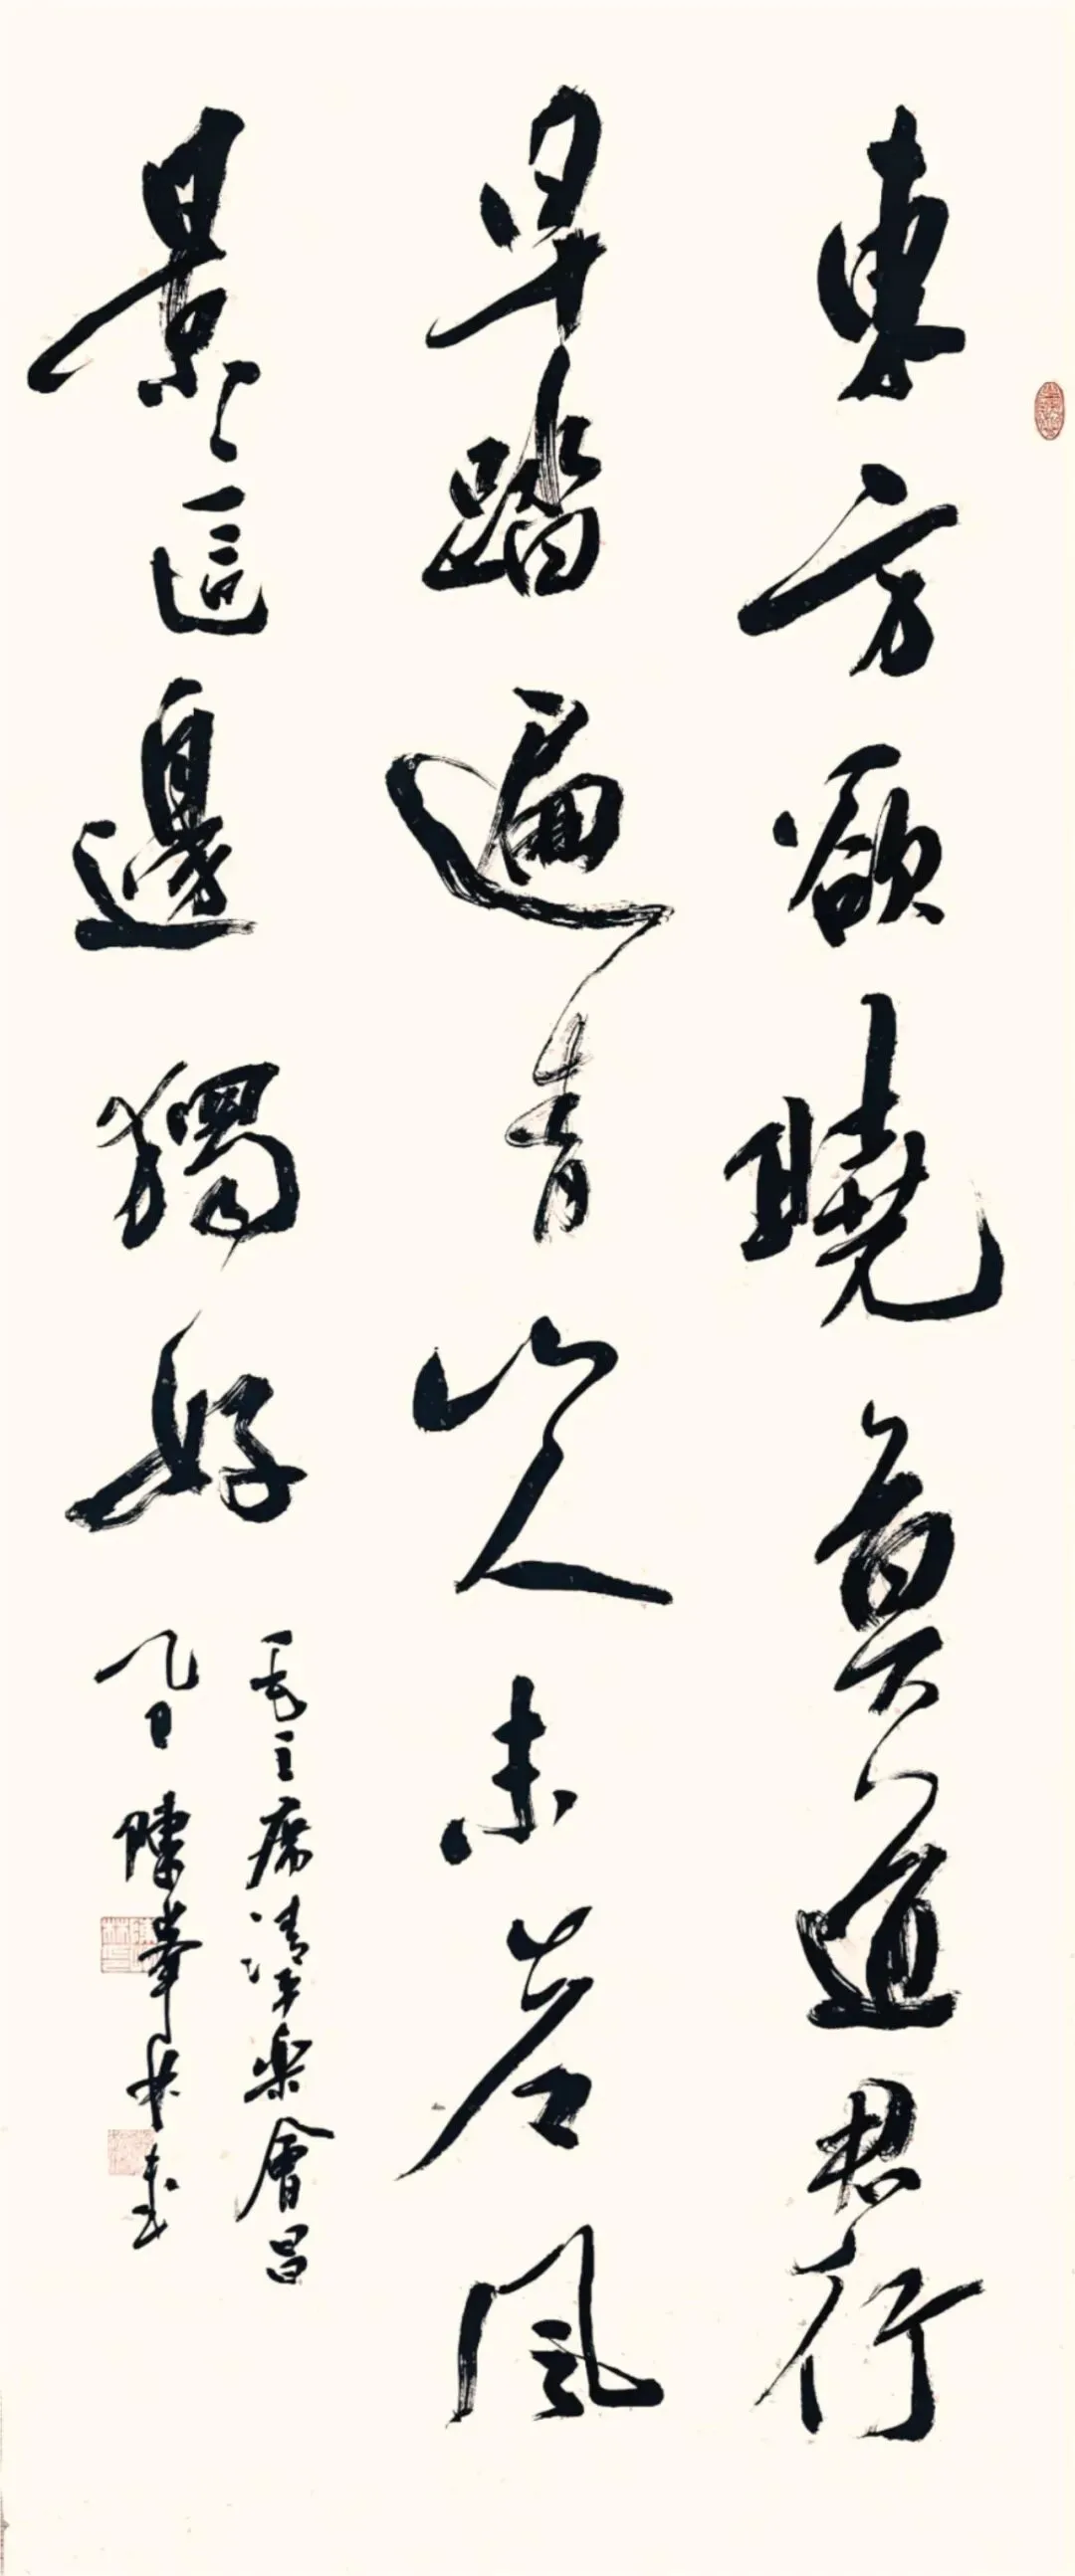 東方欲曉莫道君行
早踏遍青山人未老風
景這邊獨好
毛主席清平樂會昌
乙巳陳峯林書